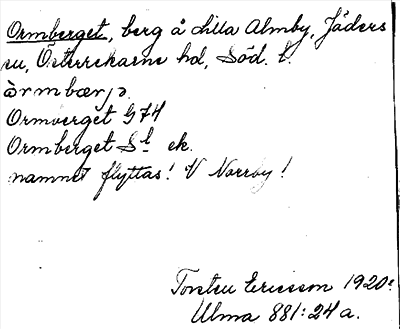 Ormberget, berg å Lilla Almby, Jäders
sn, Österrekarne hd, Söd. l.
òrmbærjə
Ormberget G74
Ormberget Sk ek.
namnet flyttas! V Norrby!
Torsten Ericsson 1920.
Ulma 881:24a.